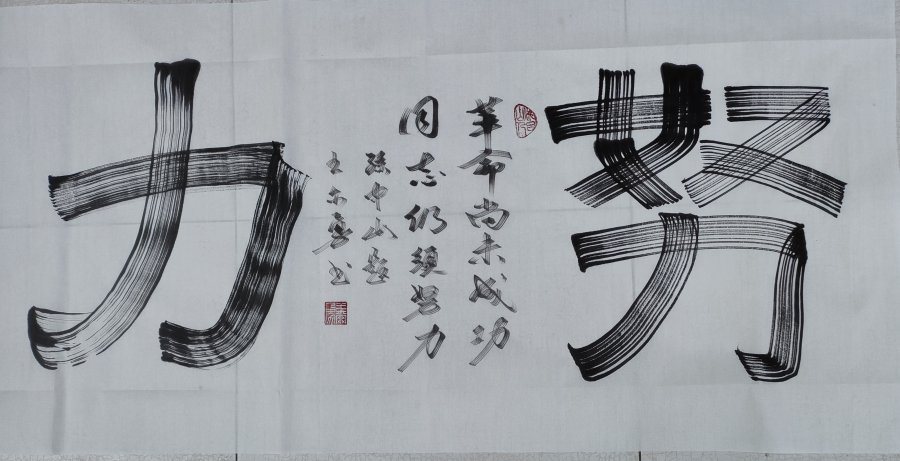 努力
革命尚未成功
同志仍须努力
孙中山题